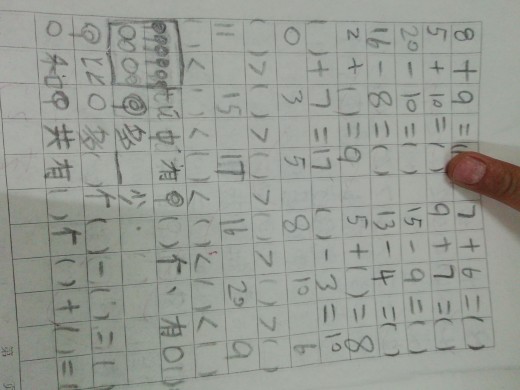 8+9=( ) 7+6=( )
5+10=( ) 9+7=( )
20-10=( ) 15-9=( )
16-8=( ) 13-4=( )
2+( )=9 5+( )=8
( )+7=17 ( )-3=10
0 3 5 8 10 6
( )>( )>( )>( )>( )
11 15 17 16 20 9
( )<( )<( )<( )<( )<( )
有◎( )个、有○( )
多 少
◎比○多( )个 ( )-( )=( )
○和◎共有( )个 ( )+( )=(